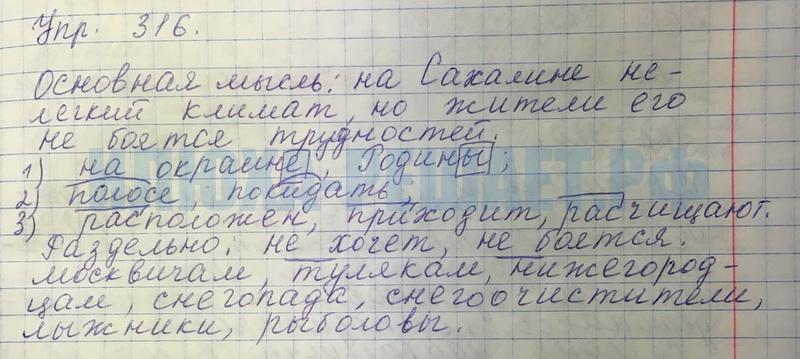 Упр. 316.
Основная мысль: на Сахалине не-
легкий климат, но жители его
не боятся трудностей.
1) на окраине, Родины;
2) полосе, покидать;
3) расположен, приходит, расчищают.
Раздельно: не хочет, не боятся.
москвичам, тулякам, нижегород-
цам, снегопада, снегоочистители,
лыжники, рыболовы.